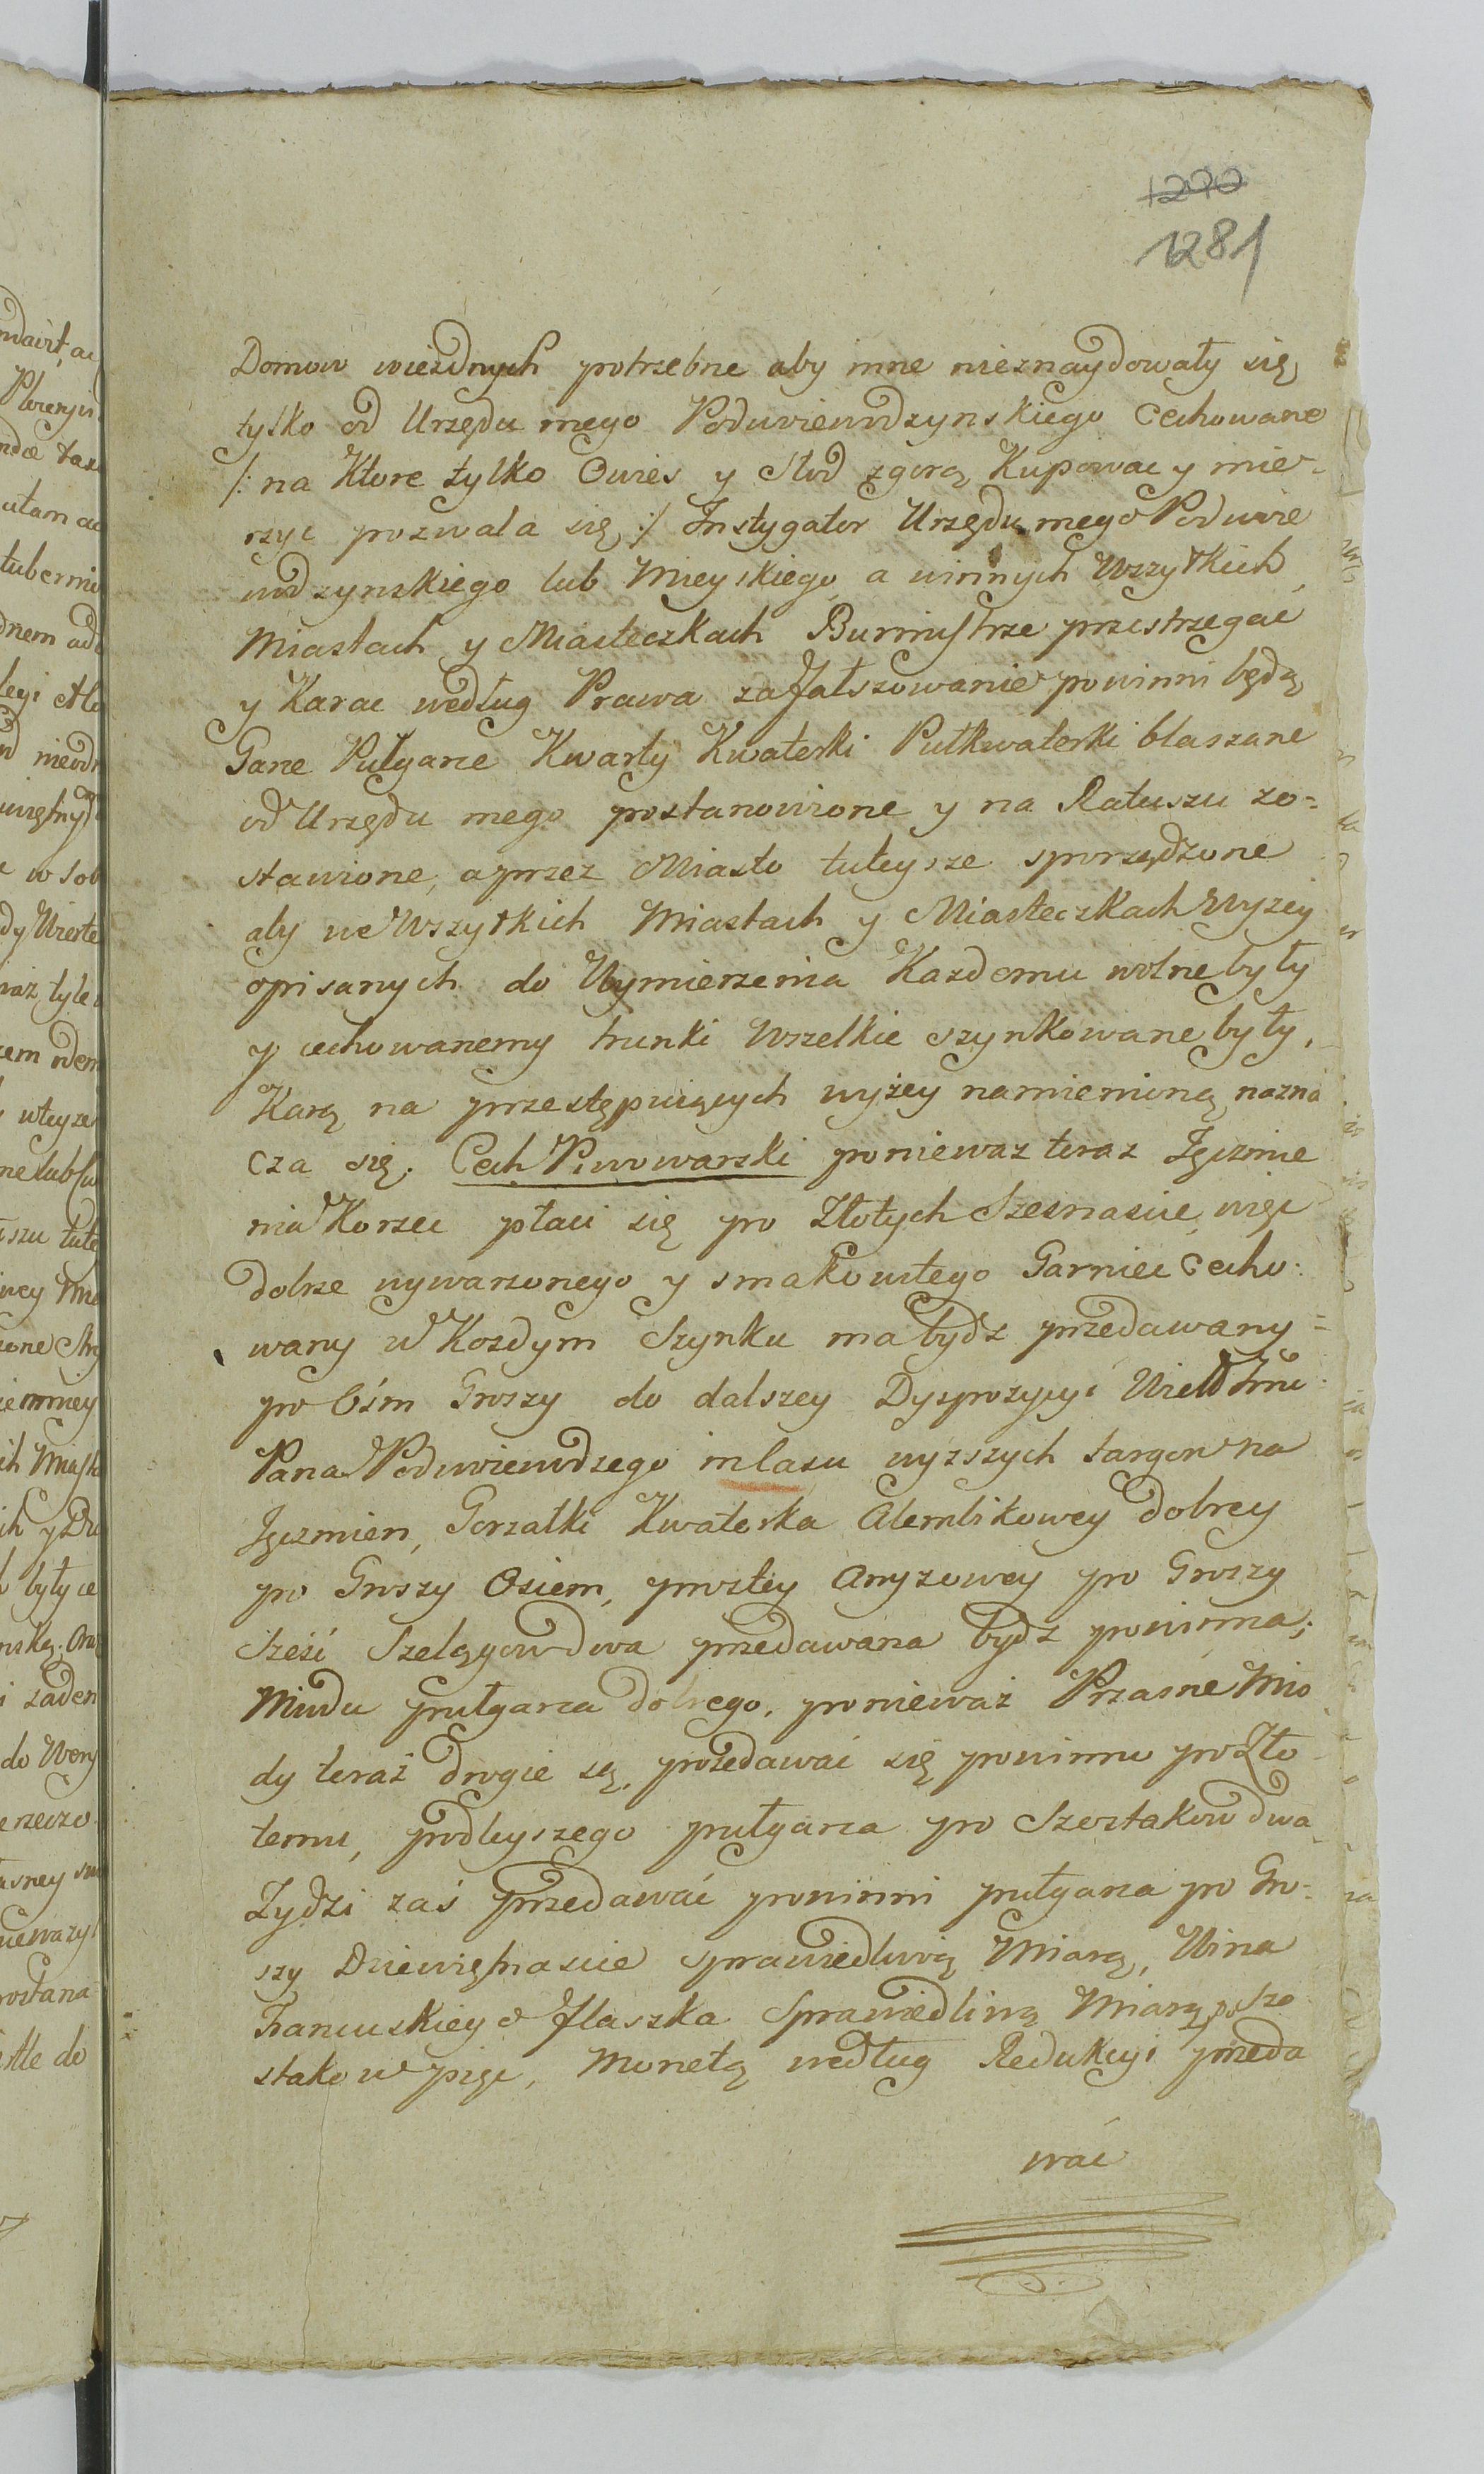 1290
1281
Domow wiezdnych potrzebne aby inne nieznaydowały się
tylko od Urzędu mego Podwiewodzynskiego cechowane
/: na Ktore tylko Owies y Słod zgorą Kupowac y mie-
rzyc pozwala się :/ Instygator Urzędu mego Podwie
wodzynskiego lub Mieyskiego, a winnych Wszytkich
Miastach y Miasteczkach Burmistrze przestrzegać
y Karac według Prawa zafałszowanie powinni będą
Garce Pułgarce Kwarty Kwaterki Pułkwaterki blaszane
od Urzędu mego postanowione y na Ratuszu zo=
stawione, a przez Miasto tuteysze sporządzone
aby we Wszytkich Miastach y Miasteczkach Wyzey
opisanych do Wymierzenia Kazdemu wolne były
y cechowanemy trunki Wszelkie szynkowane były,
Karą na przestępuiących wyżey namienioną nazna
cza się. Cech Piwowarski poniewaz teraz Jęczmie
nia Korzec płaci się po Złotych Szesnascie, więc
dobrze wywarzonego y smakowitego Garniec cecho:
wany w Kozdym Szynku ma bydz przedawany=
po Ośm Groszy do dalszey Dyspozycyi
Pana Podwiewodzego in lasu wyzszych targow na
Jęczmien, Gorzałki Kwaterka Alembikowey dobrey
po Groszy Osiem, prostey Anyzowey po Groszy
Sześć Szelągow dwa przedawana bydz powinna;
Miodu pułgarca dobrego, ponieważ Przasne Mio
dy teraz drogie są, przedawać się powinno po Zło
temu, podleyszego pułgarca po Szostakow dwa
Żydzi zaś przedawać powinni pułgarca po Gro=
szy Dziewiętnascie sprawiedliwą Miarą, Wina
Francuskiego Flaszka Sprawiedliwą Miarą po Szo
stakow pięć, Monetą według Redukcyi przeda
wać